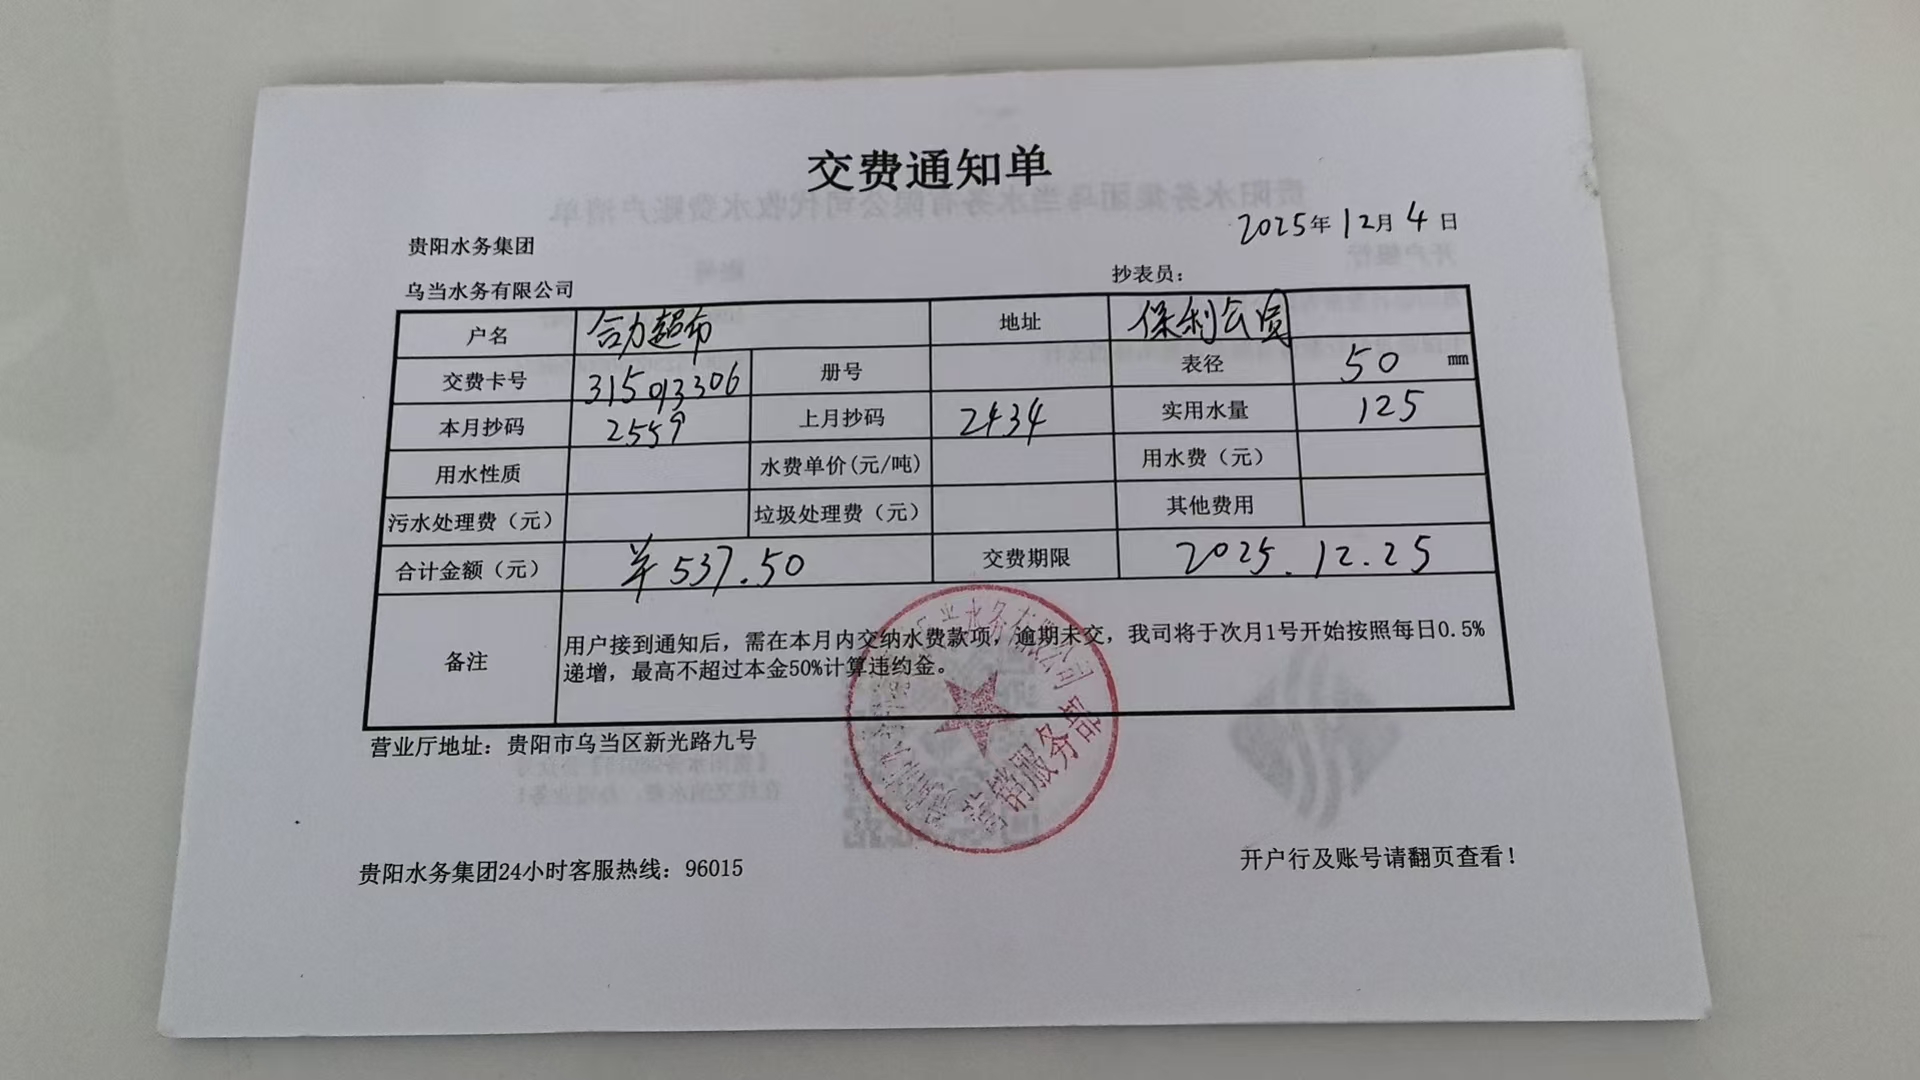 交费通知单
2025年12月4日
贵阳水务集团
乌当水务有限公司
抄表员：
户名 合力超市 地址 保利公园
交费卡号 315013306 册号 表径 50 mm
本月抄码 2559 上月抄码 2434 实用水量 125
用水性质 水费单价(元/吨) 用水费（元）
污水处理费（元） 垃圾处理费（元） 其他费用
合计金额（元） ￥537.50 交费期限 2025.12.25
备注
用户接到通知后，需在本月内交纳水费款项，逾期未交，我司将于次月1号开始按照每日0.5%
递增，最高不超过本金50%计算违约金。
水务有限公司
营销服务部
营业厅地址：贵阳市乌当区新光路九号
贵阳水务集团24小时客服热线：96015
开户行及账号请翻页查看！